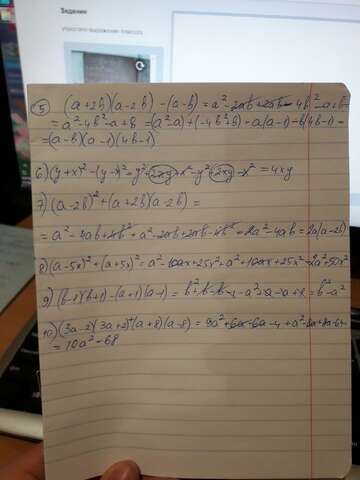 Задание
5) (a+2b)(a-2b)-(a-b)=a²-2ab+2ab-4b²-a+b=
=a²-4b²-a+b=(a²-a)+(-4b²+b)=a(a-1)-b(4b-1)=
=(a-b)(a-1)(4b-1)
6) (y+x)²-(y-x)²=y²+2xy+x²-y²+2xy-x²=4xy
7) (a-2b)²+(a+2b)(a-2b)=
=a²-4ab+4b²+a²-2ab+2ab-4b²=2a²-4ab=2a(a-2b)
8) (a-5x)²+(a+5x)²=a²-10ax+25x²+a²+10ax+25x²=2a²+50x²
9) (b-1)(b+1)-(a+1)(a-1)=b²+b-b-1-a²+a-a+1=b²-a²
10) (3a-2)(3a+2)+(a+8)(a-8)=9a²+6a-6a-4+a²-8a+8a-64
=10a²-68